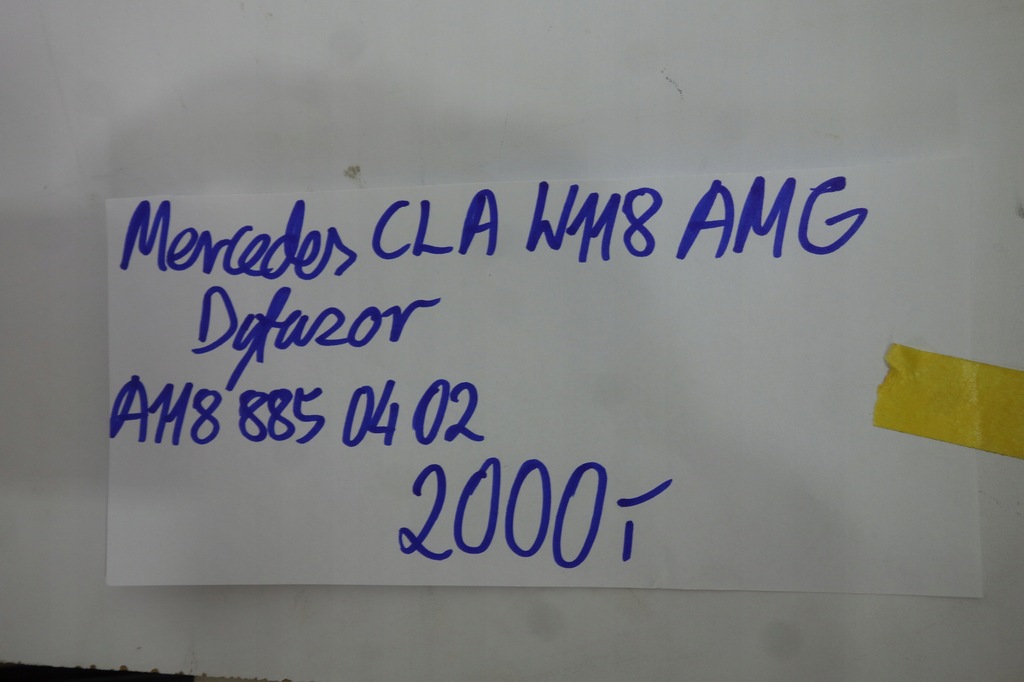 Mercedes CLA W118 AMG
Dyfuzor
A118 885 04 02
2000,-